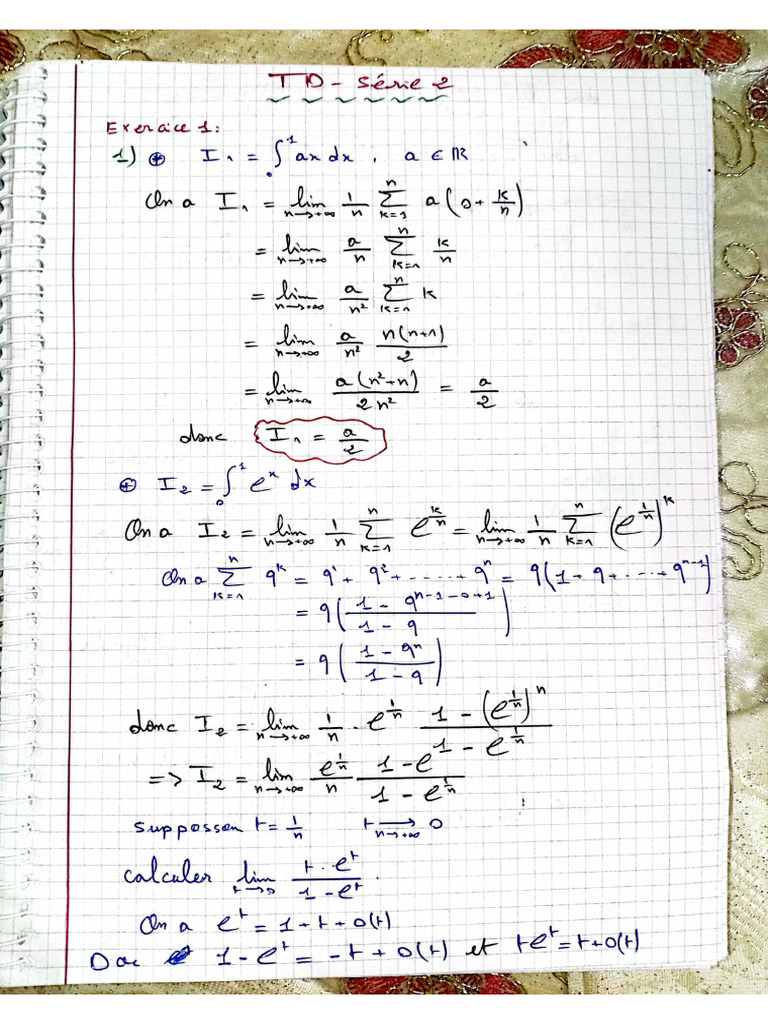 TD - Série 2
Exercice 1:
1) ⊕ I₁ = ∫₀¹ ax dx , a ∈ ℝ
On a I₁ = lim_{n→+∞} 1/n ∑_{k=1}^{n} a(0 + k/n)
= lim_{n→+∞} a/n ∑_{k=1}^{n} k/n
= lim_{n→+∞} a/n² ∑_{k=1}^{n} k
= lim_{n→+∞} a/n² n(n+1)/2
= lim_{n→+∞} a(n²+n)/2n² = a/2
donc I₁ = a/2
⊕ I₂ = ∫₀¹ eˣ dx
On a I₂ = lim_{n→+∞} 1/n ∑_{k=1}^{n} e^{k/n} = lim_{n→+∞} 1/n ∑_{k=1}^{n} (e^{1/n})^k
On a ∑_{k=1}^{n} q^k = q¹ + q² + ...... + qⁿ = q(1 + q + ... + q^{n-1})
= q((1 - q^{n-1-0+1})/(1 - q))
= q((1 - qⁿ)/(1 - q))
donc I₂ = lim_{n→+∞} 1/n · e^{1/n} (1 - (e^{1/n})^n)/(1 - e^{1/n})
=> I₂ = lim_{n→+∞} e^{1/n}/n (1 - e)/(1 - e^{1/n})
supposson t = 1/n t →_{n→+∞} 0
calculer lim_{t→0} (t · e^t)/(1 - e^t).
On a e^t = 1 + t + o(t)
Doc 1 - e^t = -t + o(t) et te^t = t + o(t)